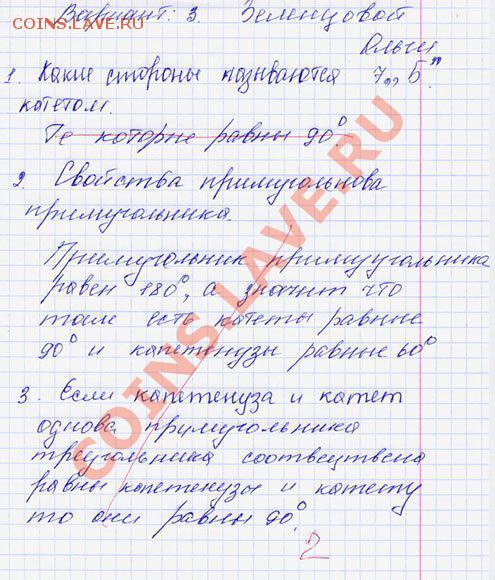 COINS.LAVE.RU
Вариант: 3. Зеленцовой
Ольги
1. Какие стороны называются 7„Б"
катетом.
Те которые равны 90°
2. Свойства примугольнова
примуголника.
Примугольник примуугольника
равен 180°, а значит что
там есть катеты равные
90° и капетенузы равные 60°
3. Если капетенуза и катет
однова примугольника
треугольника соответствена
равны капетенузы и катету
то они равны 90°.
2
COINS.LAVE.RU
COINS.LAVE.RU